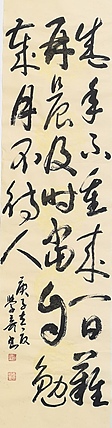 盛年不重来一日難
再晨及时當自勉
歲月不待人
庚子
書